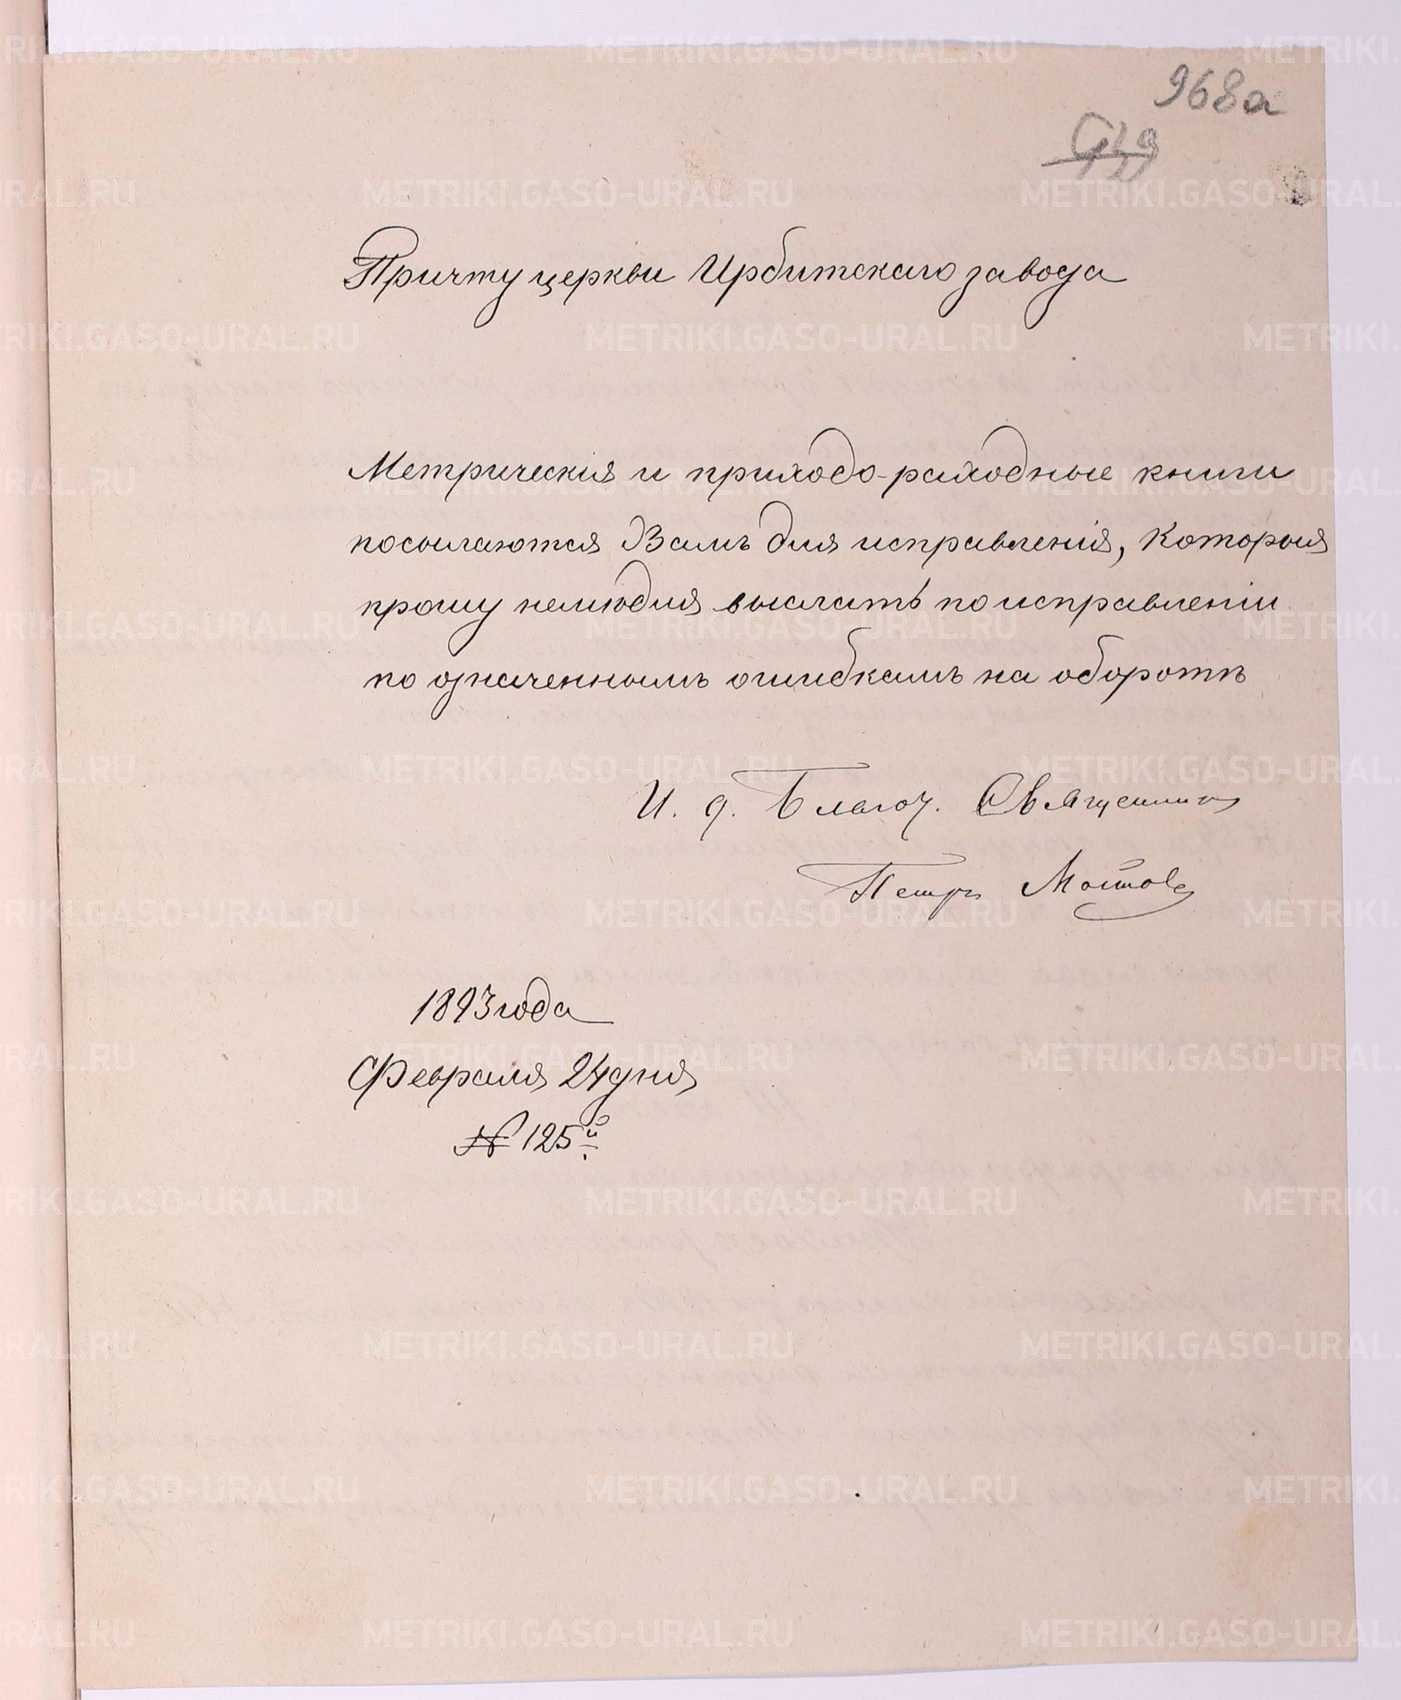 968а
Причту церкви Ирбитскаго завода
Метрическія и приходо-расходные книги
посылаются Вамъ для исправленія, которыя
прошу немѣдля выслать по исправленіи
по означеннымъ ошибкамъ на оборотѣ
И. д. Благоч. Священник
Петръ
1893 года
Февраля 24 дня
№ 125й
METRIKI.GASO-URAL.RU